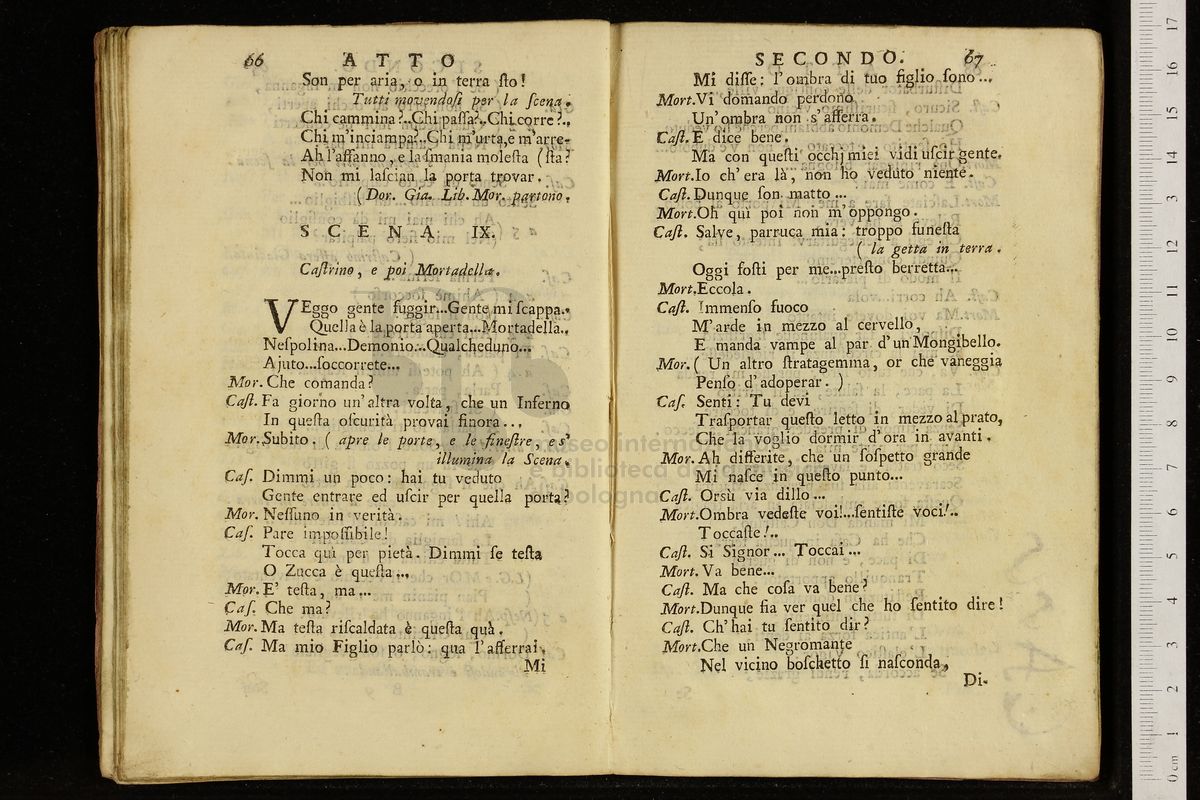 66 ATTO
Son per aria, o in terra ſto!
Tutti movendoſi per la ſcena.
Chi cammina?..Chi paſſa?..Chi corre?..
Chi m'inciampa?..Chi m'urta,e m'arre-
Ah l'affanno, e la ſmania moleſta (ſta?
Non mi laſcian la porta trovar.
(Dor. Gia. Lib. Mor. partono.
SCENA IX.
Caſtrino, e poi Mortadella.
VEggo gente fuggir...Gente mi ſcappa..
Quella è la porta aperta...Mortadella..
Neſpolina...Demonio...Qualcheduno...
Ajuto...ſoccorrete...
Mor. Che comanda?
Caſt. Fa giorno un'altra volta, che un Inferno
In queſta oſcurità provai finora...
Mor. Subito. ( apre le porte, e le fineſtre, e s'
illumina la Scena.
Caſ. Dimmi un poco: hai tu veduto
Gente entrare ed uſcir per quella porta?
Mor. Neſſuno in verità.
Caſ. Pare impoſſibile!
Tocca quì per pietà. Dimmi ſe teſta
O Zucca è queſta...
Mor. E' teſta, ma...
Caſ. Che ma?
Mor. Ma teſta riſcaldata è queſta quà.
Caſ. Ma mio Figlio parlò: qua l'afferrai.
Mi
SECONDO. 67
Mi diſſe: l'ombra di tuo figlio ſono...
Mort. Vi domando perdono
Un'ombra non s'afferra.
Caſt. E dice bene.
Ma con queſti occhj miei vidi uſcir gente.
Mort. Io ch'era là, non ho veduto niente.
Caſt. Dunque ſon matto...
Mort. Oh quì poi non m'oppongo.
Caſt. Salve, parruca mia: troppo funeſta
( la getta in terra.
Oggi foſti per me...preſto berretta...
Mort. Eccola.
Caſt. Immenſo fuoco
M'arde in mezzo al cervello,
E manda vampe al par d'un Mongibello.
Mor. ( Un altro ſtratagemma, or che vaneggia
Penſo d'adoperar. )
Caſ. Senti: Tu devi
Traſportar queſto letto in mezzo al prato,
Che la voglio dormir d'ora in avanti.
Mor. Ah differite, che un ſoſpetto grande
Mi naſce in queſto punto...
Caſt. Orsù via dillo...
Mort. Ombra vedeſte voi!...ſentiſte voci!..
Toccaſte!..
Caſt. Si Signor... Toccai...
Mort. Va bene...
Caſt. Ma che coſa va bene?
Mort. Dunque ſia ver quel che ho ſentito dire!
Caſt. Ch'hai tu ſentito dir?
Mort. Che un Negromante
Nel vicino boſchetto ſi naſconda,
Di-